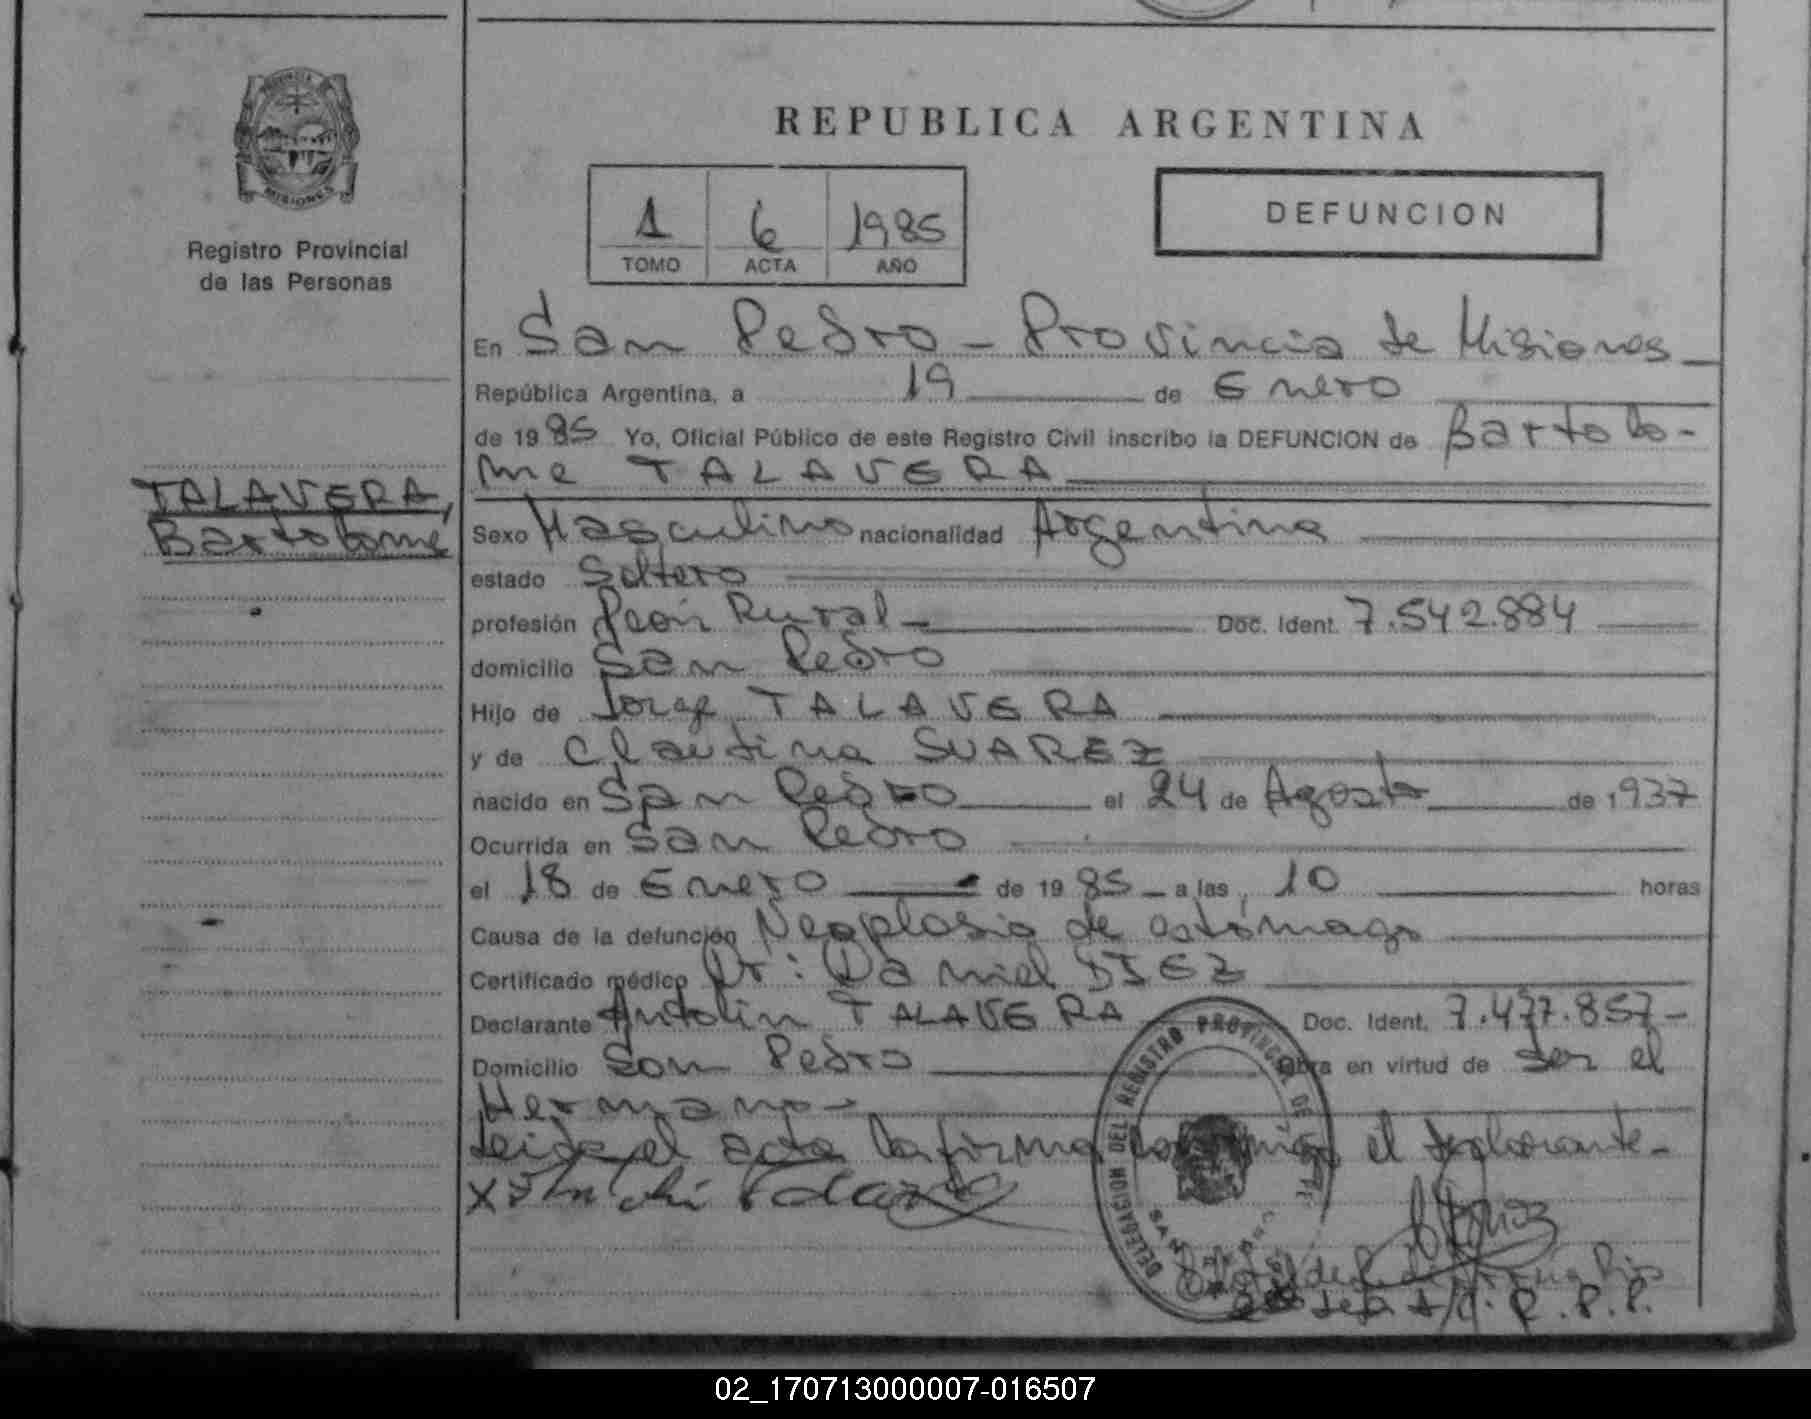 PROVINCIA
MISIONES
Registro Provincial
de las Personas
TALAVERA,
Bartolomé
REPUBLICA ARGENTINA
1 6 1985
TOMO ACTA AÑO
DEFUNCION
En San Pedro - Provincia de Misiones
República Argentina, a 19 de Enero
de 1985 Yo, Oficial Público de este Registro Civil inscribo la DEFUNCION de Bartolo-
me TALAVERA
Sexo Masculino nacionalidad Argentina
estado Soltero
profesión Peón Rural - Doc. Ident. 7.542.884
domicilio San Pedro
Hijo de Jorge TALAVERA
y de Clautina SUAREZ
nacido en San Pedro el 24 de Agosto de 1937
Ocurrida en San Pedro
el 18 de Enero de 1985 a las 10 horas
Causa de la defunción Neoplasia de estómago
Certificado médico Dr: Daniel DIEZ
Declarante Antolin TALAVERA Doc. Ident. 7.477.857-
Domicilio San Pedro Obra en virtud de ser el
Hermano-
Leida el acta la firma conmigo el declarante-
DELEGACION DEL REGISTRO PROVINCIAL DE
SAN PEDRO
R.P.P.
02_170713000007-016507